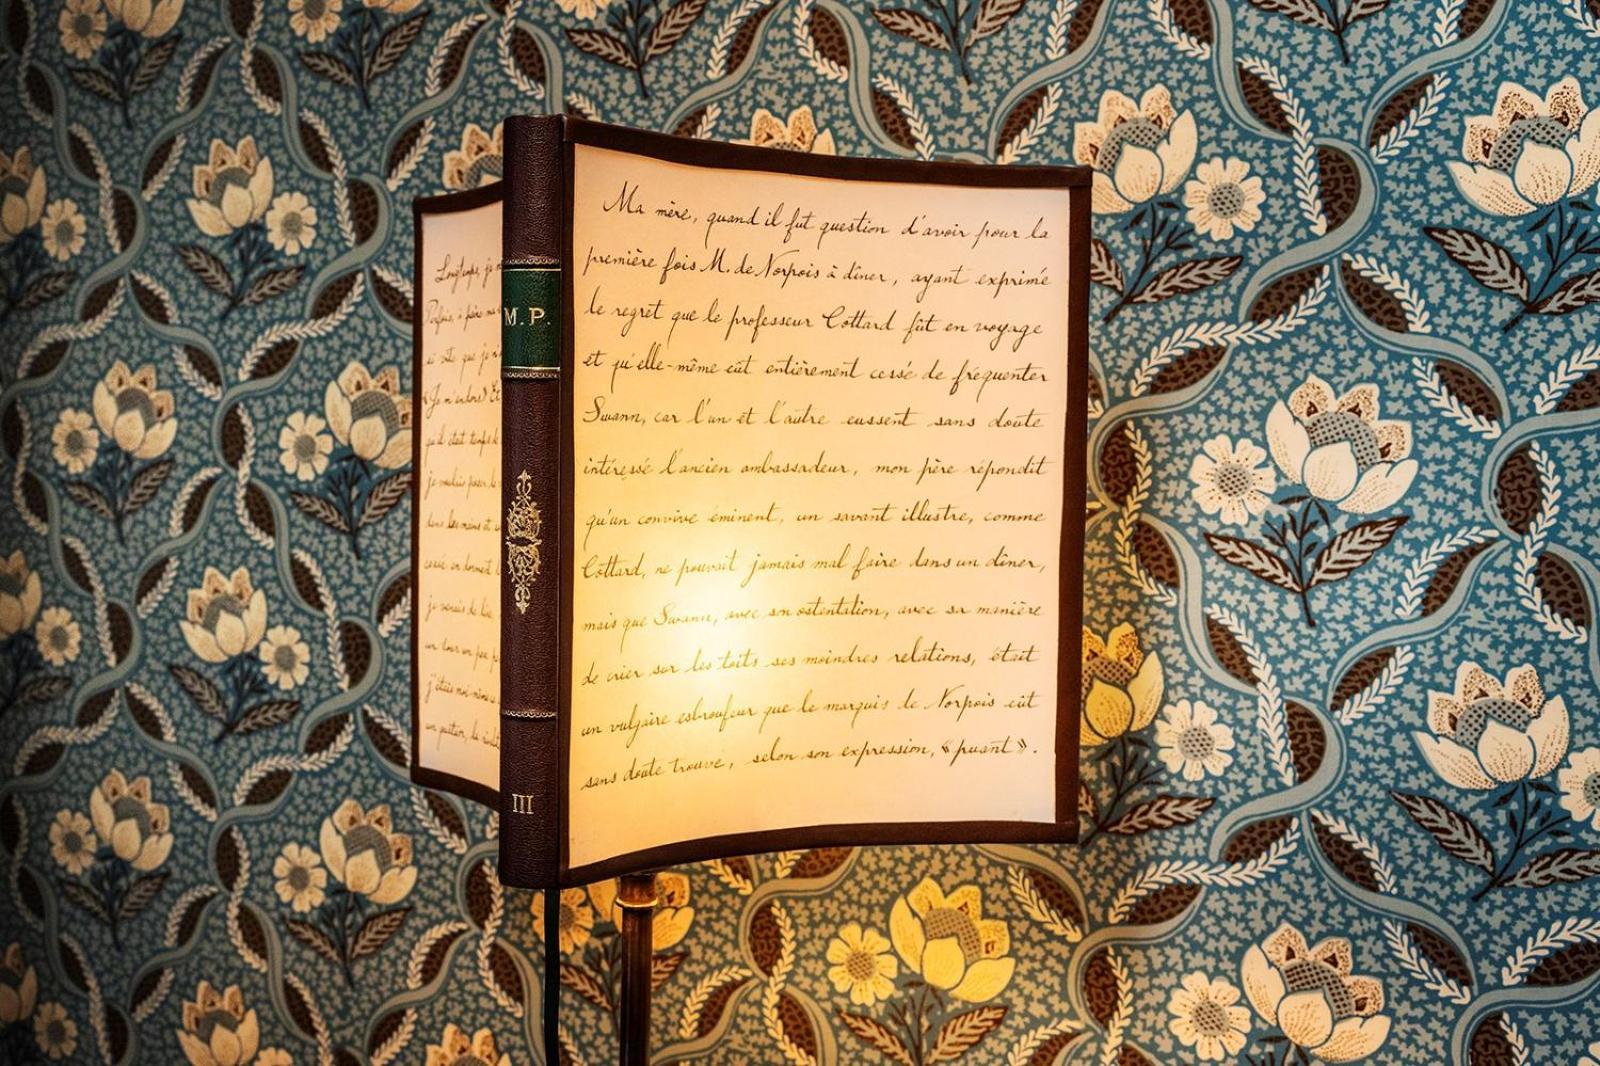 Longtemps, je
Parfois, à peine ma
si vite que je n'
«Je m'endors» Et
qu'il était temps de
je voulais poser le
dans les mains et
cessé en dormant
je venais de lire,
un tour un peu p
j'étais moi-même
un quatuor, la rivali
M.P.
III
Ma mère, quand il fut question d'avoir pour la
première fois M. de Norpois à dîner, ayant exprimé
le regret que le professeur Cottard fût en voyage
et qu'elle-même eût entièrement cessé de fréquenter
Swann, car l'un et l'autre eussent sans doute
intéressé l'ancien ambassadeur, mon père répondit
qu'un convive éminent, un savant illustre, comme
Cottard, ne pouvait jamais mal faire dans un dîner,
mais que Swann, avec son ostentation, avec sa manière
de crier sur les toits ses moindres relations, était
un vulgaire esbroufeur que le marquis de Norpois eût
sans doute trouvé, selon son expression, «puant».